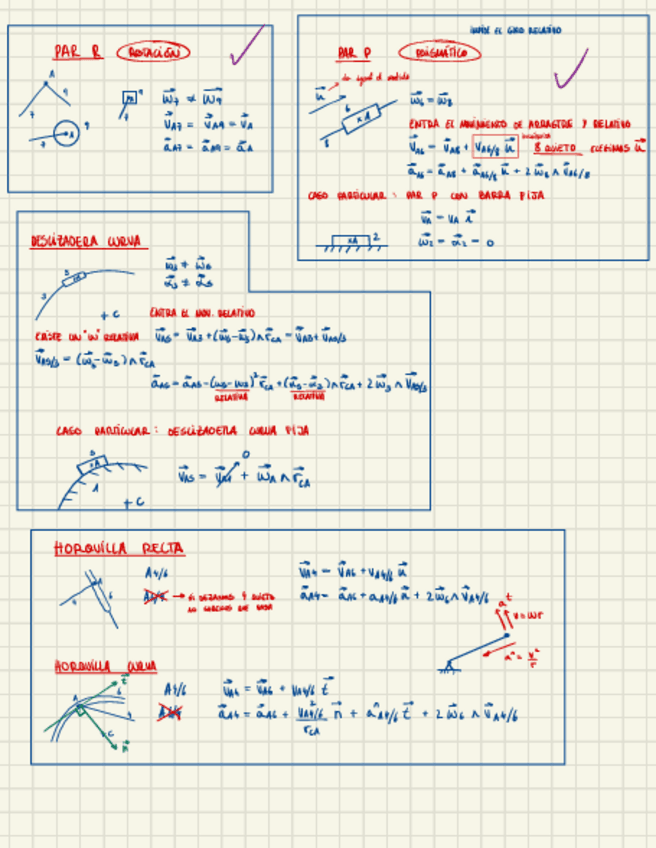 PAR R (ROTACIÓN)
A
7
9
7
9
A
7
9
ω⃗7 ≠ ω⃗9
v⃗A7 = v⃗A9 = v⃗A
a⃗A7 = a⃗A9 = a⃗A
IMPIDE EL GIRO RELATIVO
PAR P (PRISMÁTICO)
u⃗
da igual el sentido
6
xA
8
ω⃗6 = ω⃗8
ENTRA EL MOVIMIENTO DE ARRASTRE Y RELATIVO
v⃗A6 = v⃗A8 + vA6/8 u⃗
8 QUIETO ELEGIMOS u⃗
a⃗A6 = a⃗A8 + aA6/8 u⃗ + 2 ω⃗8 ∧ v⃗A6/8
CASO PARTICULAR: PAR P CON BARRA FIJA
xA 2
v⃗A = vA i⃗
ω⃗2 = α⃗2 = 0
DESLIZADERA CURVA
5
3
+ C
ω⃗3 ≠ ω⃗5
α⃗3 ≠ α⃗5
ENTRA EL MOV. RELATIVO
EXISTE UN "ω" RELATIVA
v⃗A5 = v⃗A3 + (ω⃗5 - ω⃗3) ∧ r⃗CA = v⃗A3 + v⃗A5/3
v⃗A5/3 = (ω⃗5 - ω⃗3) ∧ r⃗CA
a⃗A5 = a⃗A3 - (ω5 - ω3)² r⃗CA + (α⃗5 - α⃗3) ∧ r⃗CA + 2 ω⃗3 ∧ v⃗A5/3
RELATIVA
RELATIVA
CASO PARTICULAR: DESLIZADERA CURVA FIJA
xA
1
+ C
0
HORQUILLA RECTA
A
6
A4/6
SI DEJAMOS 4 QUIETO
v⃗A4 = v⃗A6 + vA4/6 u⃗
a⃗A4 = a⃗A6 + aA4/6 u⃗ + 2 ω⃗6 ∧ v⃗A4/6
aᵗ
v = ωr
aⁿ = v²/r
HORQUILLA CURVA
A
t⃗
6
C
n⃗
A4/6
v⃗A4 = v⃗A6 + vA4/6 t⃗
a⃗A4 = a⃗A6 + v²A4/6/rCA n⃗ + aᵗA4/6 t⃗ + 2 ω⃗6 ∧ v⃗A4/6